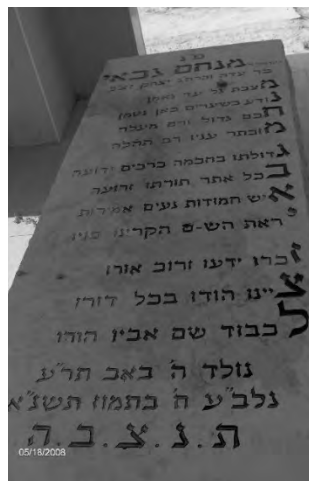 מנחם גבאי
יצחק
מצבת גל עד
נודע בשערים כאן נטמן
חכם גדול ורם מעלה
מוכתר עניו רם תהלה
גדולתו בחכמה ברבים ידועה
בכל אתר תורתו זרועה
איש חמודות נעים אמירות
יראת הש-ם הקרינו פניו
זכרו ידעו ורוב אורו
ציינו הודו בכל דורו
לכבוד שם אביו הורו
נולד ה' באב תר"ע
נלב"ע ה' בתמוז תשנ"א
ת.נ.צ.ב.ה
05/18/2008